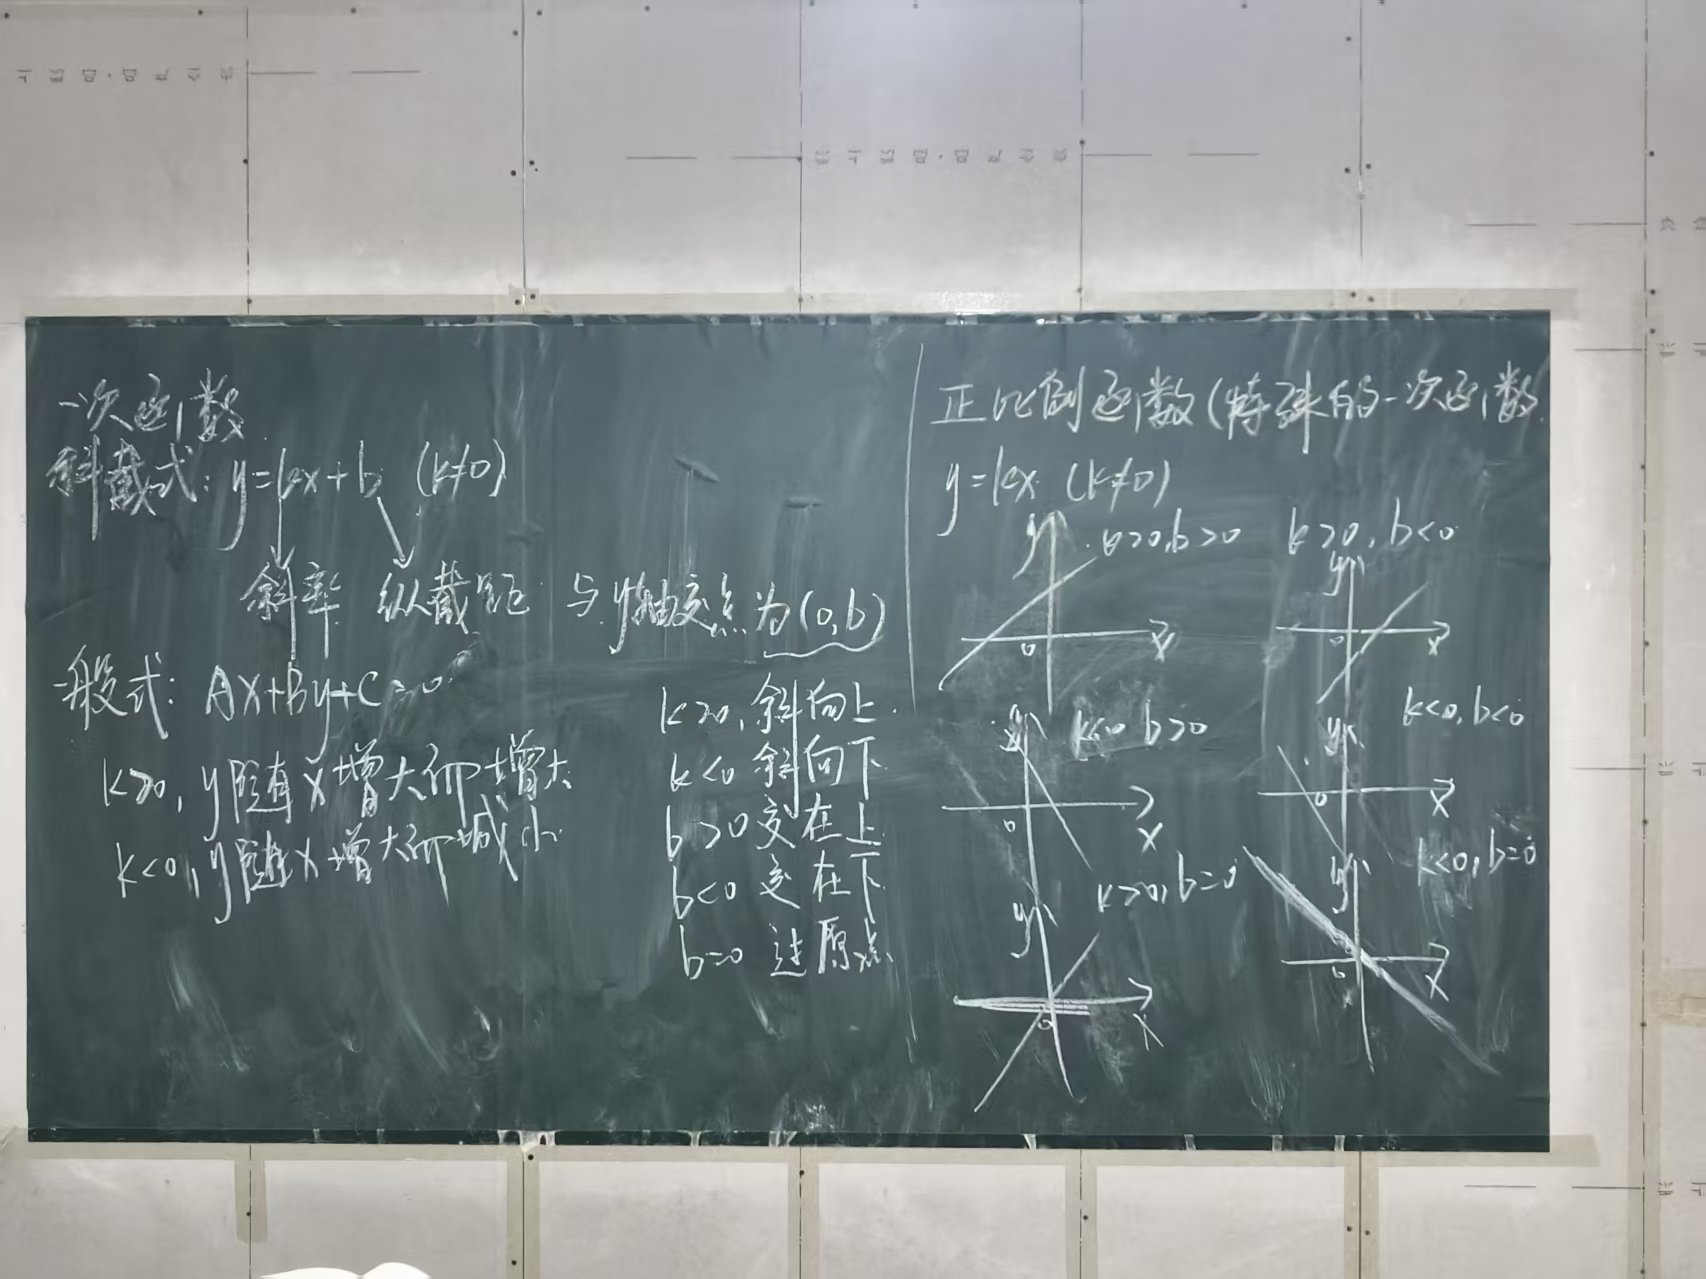 一次函数
斜截式: y=kx+b (k≠0)
斜率 纵截距 与y轴交点为(0,b)
一般式: Ax+By+C=0
k>0, y随x增大而增大
k<0, y随x增大而减小
k>0, 斜向上
k<0 斜向下
b>0 交在上
b<0 交在下
b=0 过原点
正比例函数(特殊的一次函数
y=kx (k≠0)
y k>0,b>0
0 x
k>0, b<0
y
0 x
y k<0 b>0
0 x
y k<0, b<0
0 x
y k>0, b=0
0 x
y k<0, b=0
0 x